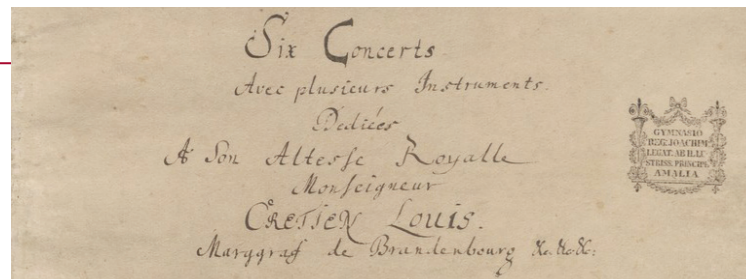 Six Concerts
Avec plusieurs Instruments.
Dediées
A Son Altesse Royalle
Monseigneur
CRETIEN Louis.
Marggraf de Brandenbourg &c. &c. &c:
GYMNASIO
REG. JOACHIM.
LEGAT. AB ILLU
STRISS. PRINCIPE
AMALIA